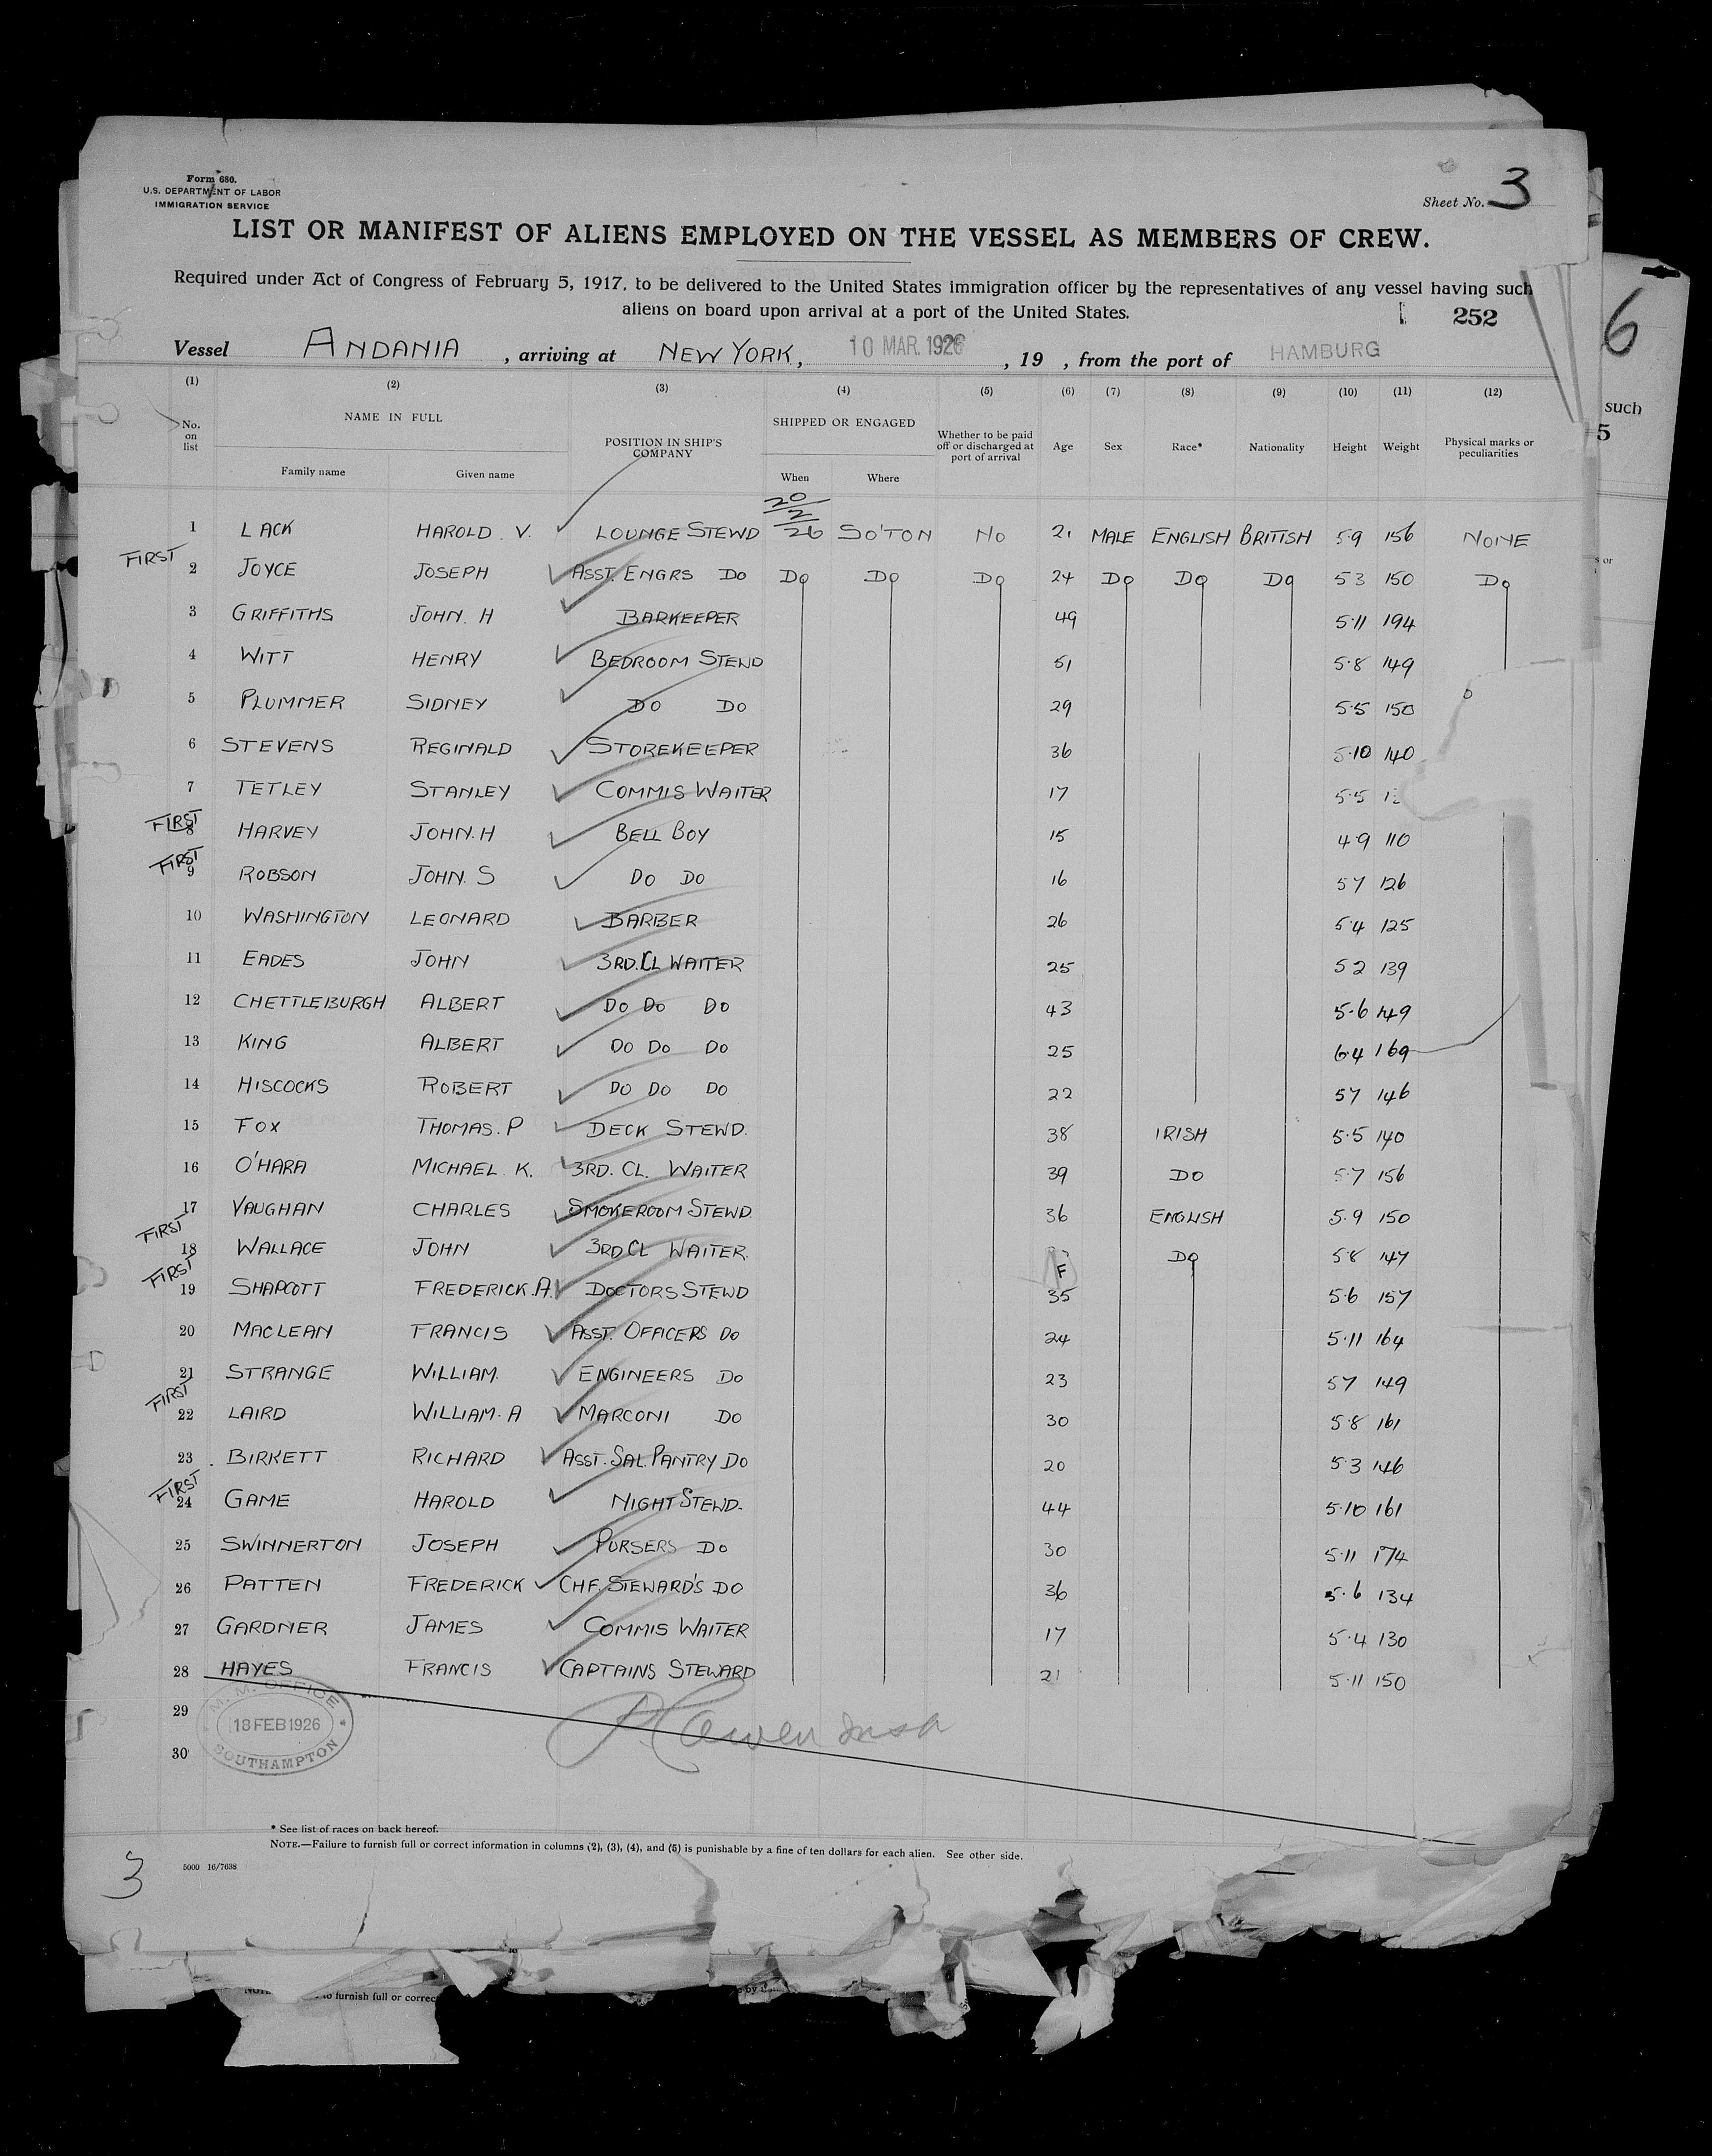 Form 680.
U.S. DEPARTMENT OF LABOR
IMMIGRATION SERVICE
Sheet No. 3
LIST OR MANIFEST OF ALIENS EMPLOYED ON THE VESSEL AS MEMBERS OF CREW.
Required under Act of Congress of February 5, 1917, to be delivered to the United States immigration officer by the representatives of any vessel having such
aliens on board upon arrival at a port of the United States.
252
6
Vessel ANDANIA, arriving at NEW YORK, 10 MAR. 1926, 19 , from the port of HAMBURG
such
5
(1) (2) (3) (4) (5) (6) (7) (8) (9) (10) (11) (12)
No. on list NAME IN FULL Family name Given name POSITION IN SHIP'S COMPANY SHIPPED OR ENGAGED When Where Whether to be paid off or discharged at port of arrival Age Sex Race* Nationality Height Weight Physical marks or peculiarities
1 LACK HAROLD. V. LOUNGE STEWD 20/2/26 SO'TON NO 21 MALE ENGLISH BRITISH 5.9 156 NONE
FIRST 2 JOYCE JOSEPH ASST. ENGRS DO DO DO DO 24 DO DO DO 5 3 150 DO
3 GRIFFITHS JOHN. H BARKEEPER 49 5.11 194
4 WITT HENRY BEDROOM STEWD 51 5.8 149
5 PLUMMER SIDNEY DO DO 29 5.5 150
6 STEVENS REGINALD STOREKEEPER 36 5.10 140
7 TETLEY STANLEY COMMIS WAITER 17 5.5
FIRST 8 HARVEY JOHN. H BELL BOY 15 4.9 110
FIRST 9 ROBSON JOHN. S DO DO 16 5 7 126
10 WASHINGTON LEONARD BARBER 26 5.4 125
11 EADES JOHN 3RD. CL WAITER 25 5 2 139
12 CHETTLEBURGH ALBERT DO DO DO 43 5.6 149
13 KING ALBERT DO DO DO 25 6.4 169
14 HISCOCKS ROBERT DO DO DO 22 5 7 146
15 FOX THOMAS. P DECK STEWD. 38 IRISH 5.5 140
16 O'HARA MICHAEL K. 3RD. CL. WAITER 39 DO 5.7 156
17 VAUGHAN CHARLES SMOKEROOM STEWD. 36 ENGLISH 5.9 150
FIRST 18 WALLACE JOHN 3RD CL WAITER. F DO 5.8 147
FIRST 19 SHAPCOTT FREDERICK. A. DOCTORS STEWD 35 5.6 157
20 MACLEAN FRANCIS ASST. OFFICERS DO 24 5.11 164
21 STRANGE WILLIAM. ENGINEERS DO 23 5 7 149
FIRST 22 LAIRD WILLIAM. A MARCONI DO 30 5.8 161
23 BIRKETT RICHARD ASST. SAL. PANTRY DO 20 5.3 146
FIRST 24 GAME HAROLD NIGHT STEWD. 44 5.10 161
25 SWINNERTON JOSEPH PURSERS DO 30 5.11 174
26 PATTEN FREDERICK CHF. STEWARD'S DO 36 5.6 134
27 GARDNER JAMES COMMIS WAITER 17 5.4 130
28 HAYES FRANCIS CAPTAINS STEWARD 21 5.11 150
29
30
M. M. OFFICE
18 FEB 1926
SOUTHAMPTON
* See list of races on back hereof.
NOTE.—Failure to furnish full or correct information in columns (2), (3), (4), and (5) is punishable by a fine of ten dollars for each alien. See other side.
3
5000 16/7638
to furnish full or correct